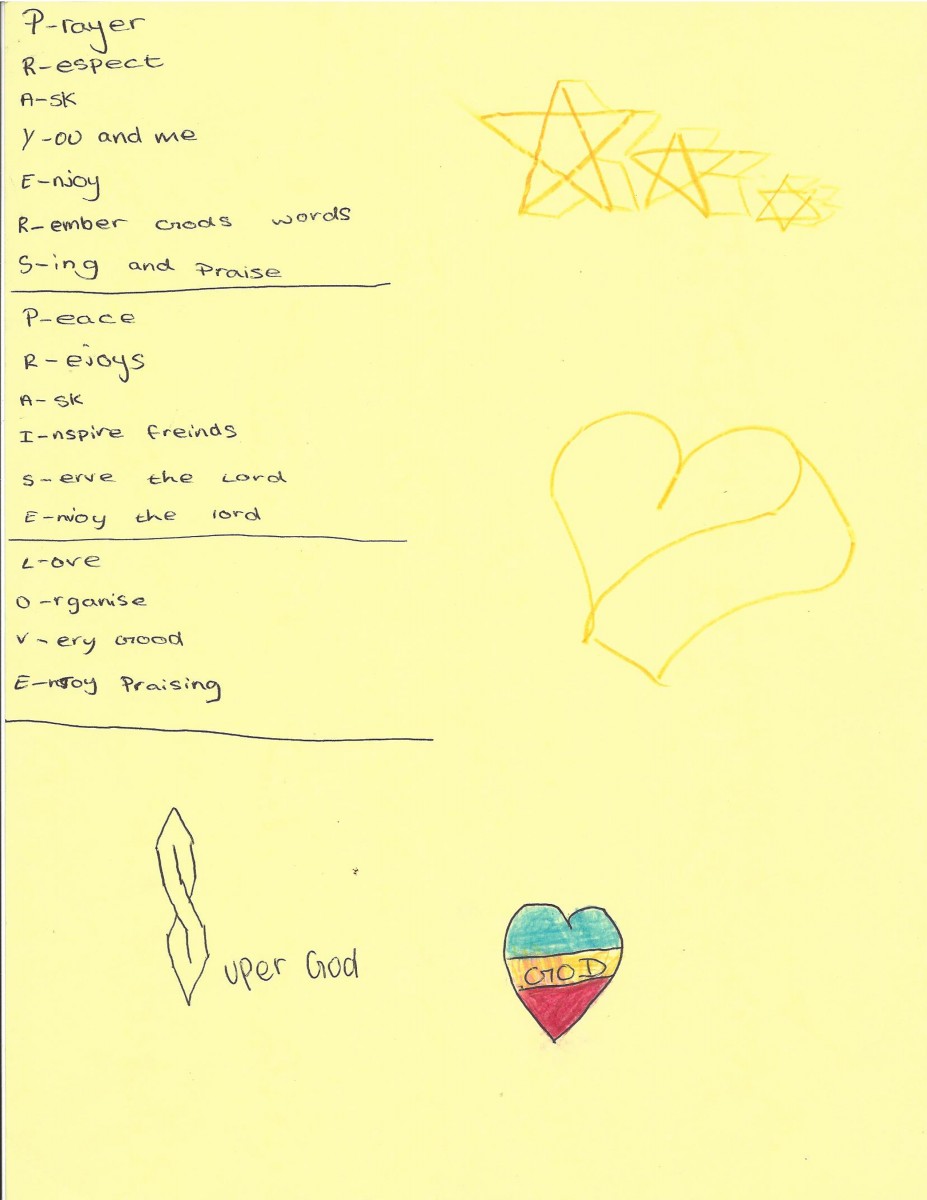 P-rayer
R-espect
A-sk
Y-ou and me
E-njoy
R-ember Gods words
S-ing and Praise
P-eace
R-ejoys
A-sk
I-nspire freinds
S-erve the Lord
E-njoy the lord
L-ove
O-rganise
V-ery Good
E-njoy Praising
Super God
GOD